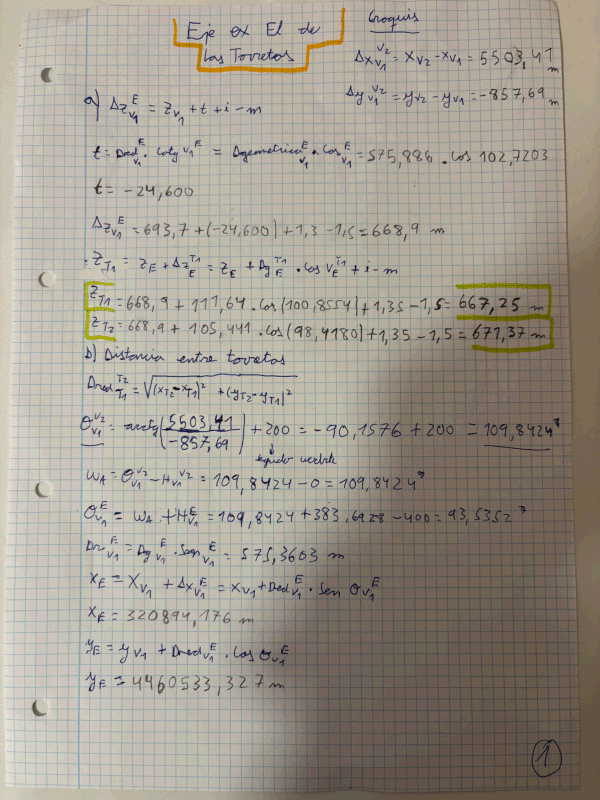 Eje ex El de
las Torretas
Croquis
Δx_{V1}^{V2} = x_{V2} - x_{V1} = 5503,41 m
Δy_{V1}^{V2} = y_{V2} - y_{V1} = -857,69 m
a) Δz_{V1}^{E} = z_{V1} + t + i - m
t = Dred_{V1}^{E} · cotg V_{V1}^{E} = Dgeometrica_{V1}^{E} · cos_{V1}^{E} = 575,886 · cos 102,7203
t = -24,600
Δz_{V1}^{E} = 693,7 + (-24,600) + 1,3 - 1,5 = 668,9 m
· z_{T1} = z_E + Δz_{E}^{T1} = z_E + Dg_{E}^{T1} · cos V_{E}^{T1} + i - m
z_{T1} = 668,9 + 111,64 · cos(100,8554) + 1,35 - 1,5 = 667,25 m
z_{T2} = 668,9 + 105,441 · cos(98,4180) + 1,35 - 1,5 = 671,37 m
b) Distancia entre torretas
Dred_{T1}^{T2} = √((x_{T2} - x_{T1})² + (y_{T2} - y_{T1})²
θ_{V1}^{V2} = arctg(5503,41 / -857,69) + 200 = -90,1576 + 200 = 109,8424^g
segundo
W_A = θ_{V1}^{V2} - H_{V1}^{V2} = 109,8424 - 0 = 109,8424^g
θ_{V1}^{E} = W_A + H_{V1}^{E} = 109,8424 + 383,6928 - 400 = 93,5352^g
Dr_{V1}^{E} = Dg_{V1}^{E} · sen_{V1}^{E} = 575,3603 m
x_E = x_{V1} + Δx_{V1}^{E} = x_{V1} + Dred_{V1}^{E} · sen θ_{V1}^{E}
x_E = 320894,176 m
y_E = y_{V1} + Dred_{V1}^{E} · cos θ_{V1}^{E}
y_E = 4460533,327 m
1